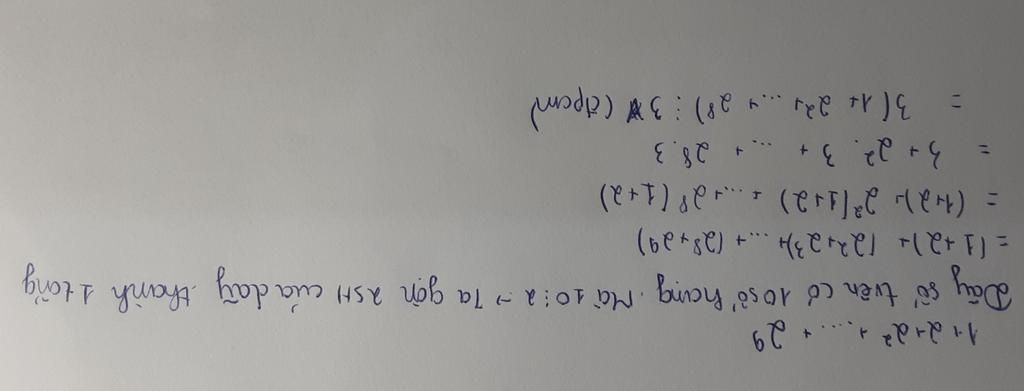 1+2+2² + .... + 2⁹
Dãy số trên có 10 số hạng. Mà 10 ⋮ 2 → Ta gộp 2 SH của dãy thành 1 tổng
= (1+2)+ (2²+2³)+ ... + (2⁸+2⁹)
= (1+2)+ 2²(1+2) + ...+ 2⁸ (1+2)
= 3 + 2². 3 + ... + 2⁸. 3
= 3(1+ 2²+ ...+ 2⁸) ⋮ 3 (đpcm)